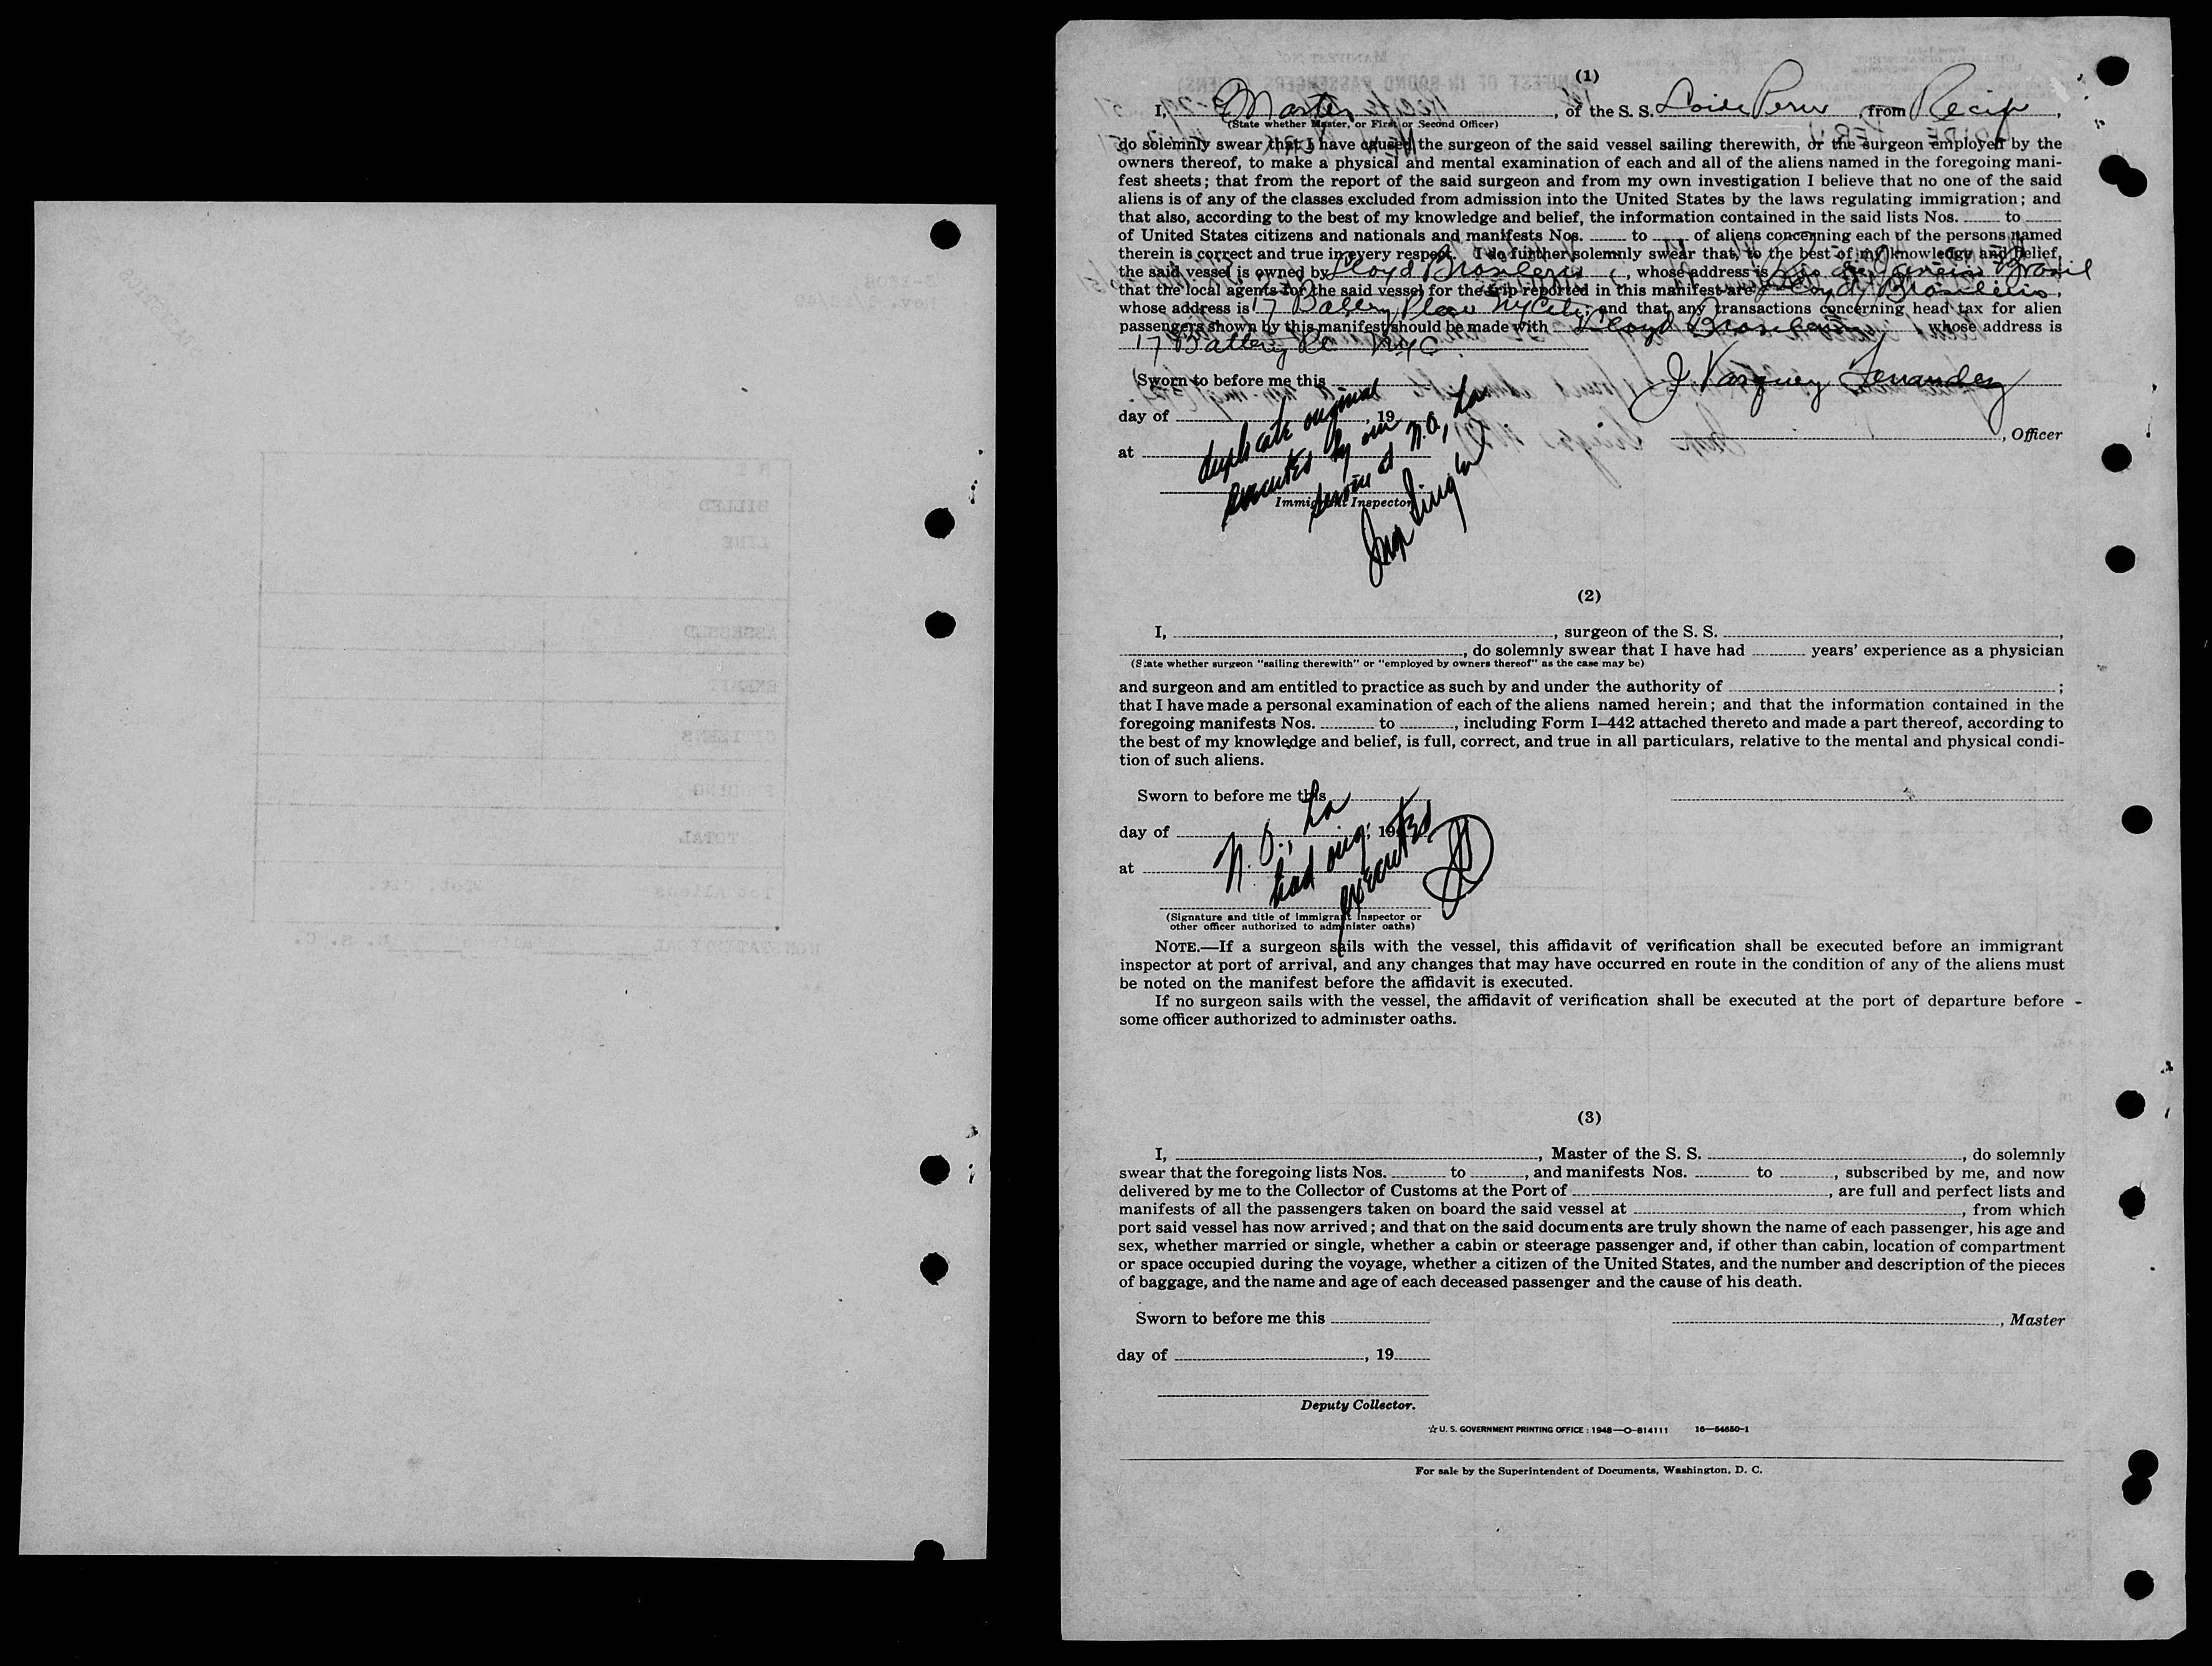 BILLED
LINE
ASSESSED
EXEMPT
CITIZENS
TOTAL
Tot Aliens
(1)
I, Master, of the S. S. Loide Peru, from Recife,
(State whether Master, or First or Second Officer)
do solemnly swear that I have caused the surgeon of the said vessel sailing therewith, or the surgeon employed by the
owners thereof, to make a physical and mental examination of each and all of the aliens named in the foregoing mani-
fest sheets; that from the report of the said surgeon and from my own investigation I believe that no one of the said
aliens is of any of the classes excluded from admission into the United States by the laws regulating immigration; and
that also, according to the best of my knowledge and belief, the information contained in the said lists Nos. to
of United States citizens and nationals and manifests Nos. to of aliens concerning each of the persons named
therein is correct and true in every respect. I do further solemnly swear that, to the best of my knowledge and belief,
the said vessel is owned by Lloyd Brasileiro, whose address is Rio de Janeiro Brasil
that the local agents for the said vessel for the trip reported in this manifest are Lloyd Brasileiro,
whose address is 17 Battery Place NY City; and that any transactions concerning head tax for alien
passengers shown by this manifest should be made with Lloyd Brasileiro, whose address is
17 Battery Pl NYC
Sworn to before me this
J Vasquez Fernandez
day of , 19
, Officer
at
duplicate original
executed by our
service at N.O., La
Immigrant Inspector
(2)
I, , surgeon of the S. S. ,
, do solemnly swear that I have had years' experience as a physician
(State whether surgeon "sailing therewith" or "employed by owners thereof" as the case may be)
and surgeon and am entitled to practice as such by and under the authority of ;
that I have made a personal examination of each of the aliens named herein; and that the information contained in the
foregoing manifests Nos. to , including Form I–442 attached thereto and made a part thereof, according to
the best of my knowledge and belief, is full, correct, and true in all particulars, relative to the mental and physical condi-
tion of such aliens.
Sworn to before me this
day of , 19
at
N. O., La
had orig.
executed
(Signature and title of immigrant inspector or
other officer authorized to administer oaths)
NOTE.—If a surgeon sails with the vessel, this affidavit of verification shall be executed before an immigrant
inspector at port of arrival, and any changes that may have occurred en route in the condition of any of the aliens must
be noted on the manifest before the affidavit is executed.
If no surgeon sails with the vessel, the affidavit of verification shall be executed at the port of departure before
some officer authorized to administer oaths.
(3)
I, , Master of the S. S. , do solemnly
swear that the foregoing lists Nos. to , and manifests Nos. to , subscribed by me, and now
delivered by me to the Collector of Customs at the Port of , are full and perfect lists and
manifests of all the passengers taken on board the said vessel at , from which
port said vessel has now arrived; and that on the said documents are truly shown the name of each passenger, his age and
sex, whether married or single, whether a cabin or steerage passenger and, if other than cabin, location of compartment
or space occupied during the voyage, whether a citizen of the United States, and the number and description of the pieces
of baggage, and the name and age of each deceased passenger and the cause of his death.
Sworn to before me this
, Master
day of , 19
Deputy Collector.
☆ U. S. GOVERNMENT PRINTING OFFICE : 1948—O-814111 16—54650-1
For sale by the Superintendent of Documents, Washington, D. C.